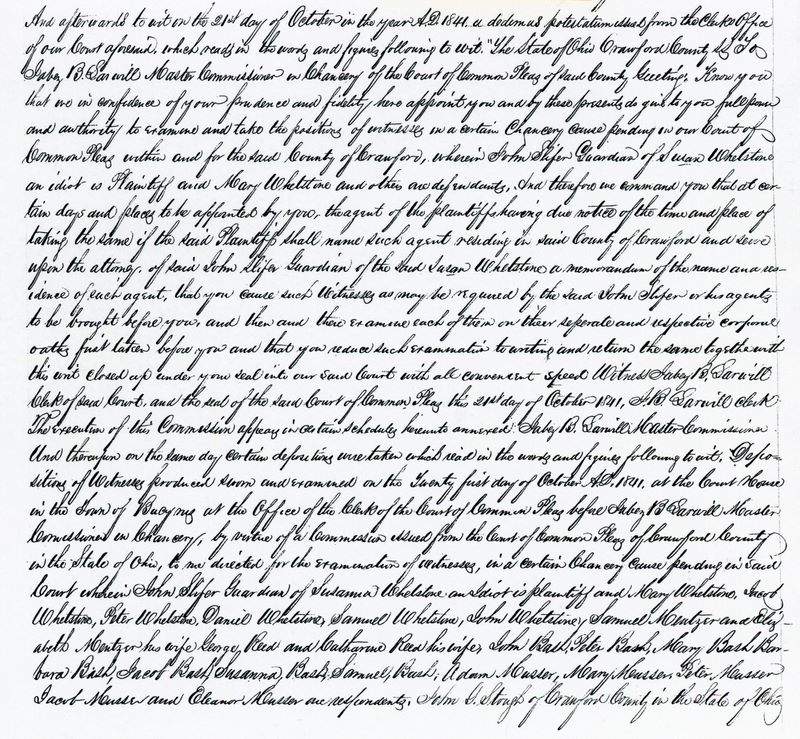 And afterwards to wit on the 21st day of October in the year A.D. 1841. a dedimus potestatum issued from the Clerks Office
of our Court aforesaid, which reads in the words and figures following to wit. "The State of Ohio Crawford County ss. To
Jabez B. Larwill Master Commissioner in Chancery of the Court of Common Pleas of said County Greeting: Know you
that we in confidence of your prudence and fidelity have appoint you and by these presents do give to you full power
and authority to examine and take the positions of witnesses in a certain Chancery cause pending in our Court of
Common Pleas within and for the said County of Crawford, wherein John Slifer Guardian of Susan Whetstone
an idiot is Plaintiff and Mary Whetstone and others are defendants. And therefore we command you that at cer-
tain days and places to be appointed by you, the agent of the plaintiffs having due notice of the time and place of
taking the same if the said Plaintiffs shall name such agent residing in said County of Crawford and serve
upon the attorney of said John Slifer Guardian of the said Susan Whetstone a memorandum of the name and res-
idence of such agent, that you cause such Witnesses as may be required by the said John Slifer or his agents
to be brought before you, and then and there examine each of them on their seperate and respective corporal
oaths first taken before you and that you reduce such examination to writing and return the same together with
this writ closed up under your seal into our said Court with all convenient speed Witness Jabez B. Larwill
Clerk of said Court, and the seal of the said Court of Common Pleas this 21st day of October 1841, J. B. Larwill Clerk
The execution of this Commission appears in certain schedules hereunto annexed. Jabez B. Larwill Master Commissioner.
And thereupon on the same day certain depositions were taken which read in the words and figures following to wit. "Depo-
sitions of Witnesses produced sworn and examined on the Twenty first day of October A.D. 1841. at the Court House
in the Town of Bucyrus at the Office of the Clerk of the Court of Common Pleas before Jabez B Larwill Master
Comissioner in Chancery, by virtue of a Commission issued from the Court of Common Pleas of Crawford County
in the State of Ohio, to me directed for the examination of witnesses, in a certain Chancery cause pending in said
Court wherein John Slifer Guardian of Susanna Whetstone an Idiot is plaintiff and Mary Whetstone, Jacob
Whetstone, Peter Whetstone, Daniel Whetstone, Samuel Whetstone, John Whetstone, Samuel Mentzer and Eliz-
abeth Mentzer his wife George Reed and Catharine Reed his wife, John Bash, Peter Bash, Mary Bash Bar-
bara Bash, Jacob Bash, Susanna Bash, Samuel Bash, Adam Musser, Mary Musser, Peter Musser
Jacob Musser and Eleanor Musser are respondents. John G. Stough of Crawford County in the State of Ohio